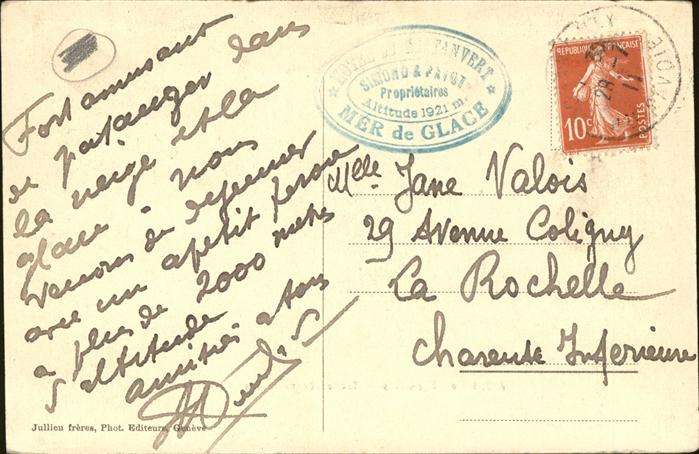 Fort amusant
de patauger dans
la neige et la
glace - nous
venons de dejeuner
avec un apetit feroce
a plus de 2000 metres
d'altitude
amitiés a tous
HOTEL DU MONTANVERT
SIMOND & PAYOT
Propriétaires
Altitude 1921 m.
★ MER de GLACE ★
REPUBLIQUE FRANÇAISE
10c
POSTES
Mlle Jane Valois
29 Avenue Coligny
La Rochelle
Charente Inferieure
Jullien frères, Phot. Editeurs, Genève